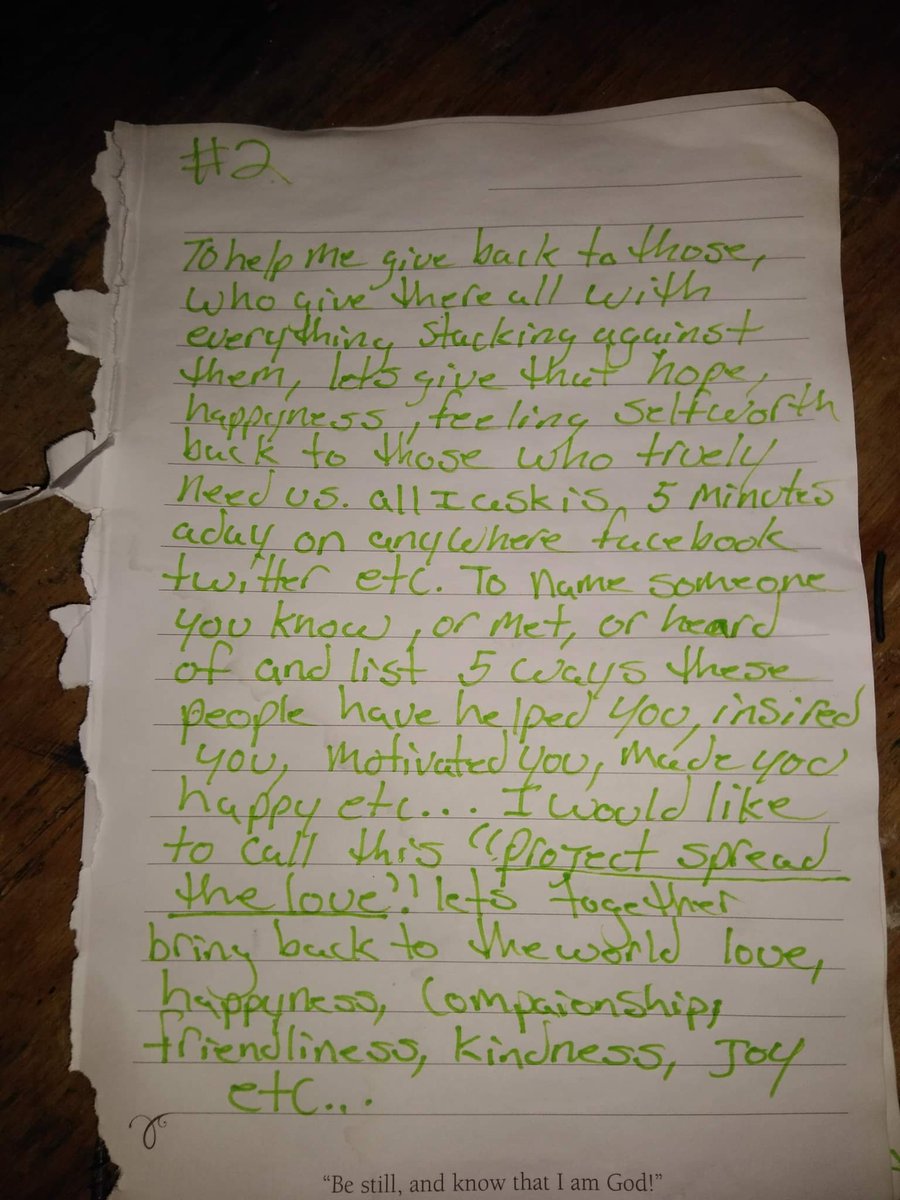 #2
To help me give back to those,
who give there all with
everything stacking against
them, lets give that hope,
happyness, feeling selfworth
back to those who truely
need us. all I ask is, 5 minutes
a day on anywhere facebook
twitter etc. To name someone
you know, or met, or heard
of and list 5 ways these
people have helped you, insired
you, motivated you, made you
happy etc... I would like
to call this "project spread
the love"! lets together
bring back to the world love,
happyness, Compaionship,
friendliness, kindness, Joy
etc...
"Be still, and know that I am God!"